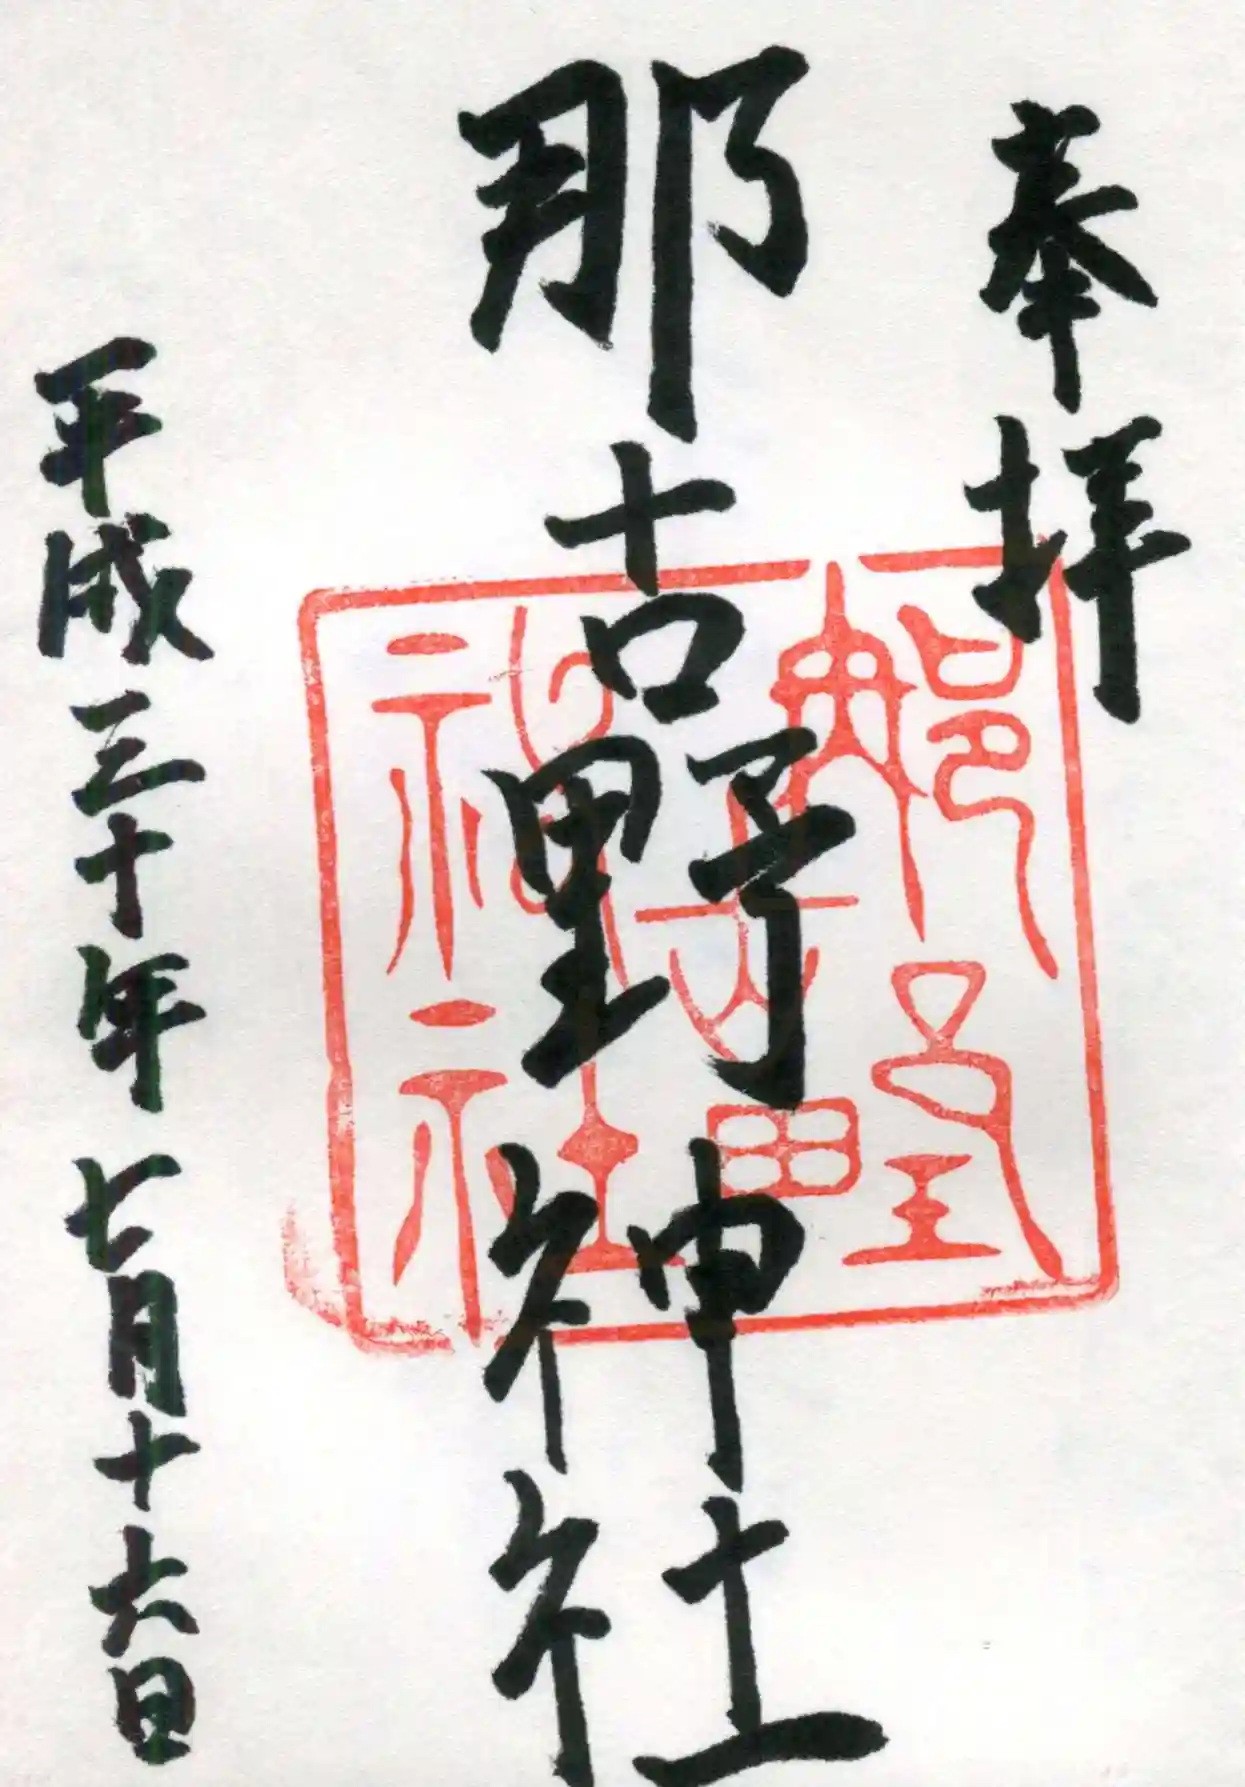 奉拝
那古野神社
平成三十年七月十六日
那古野
神社